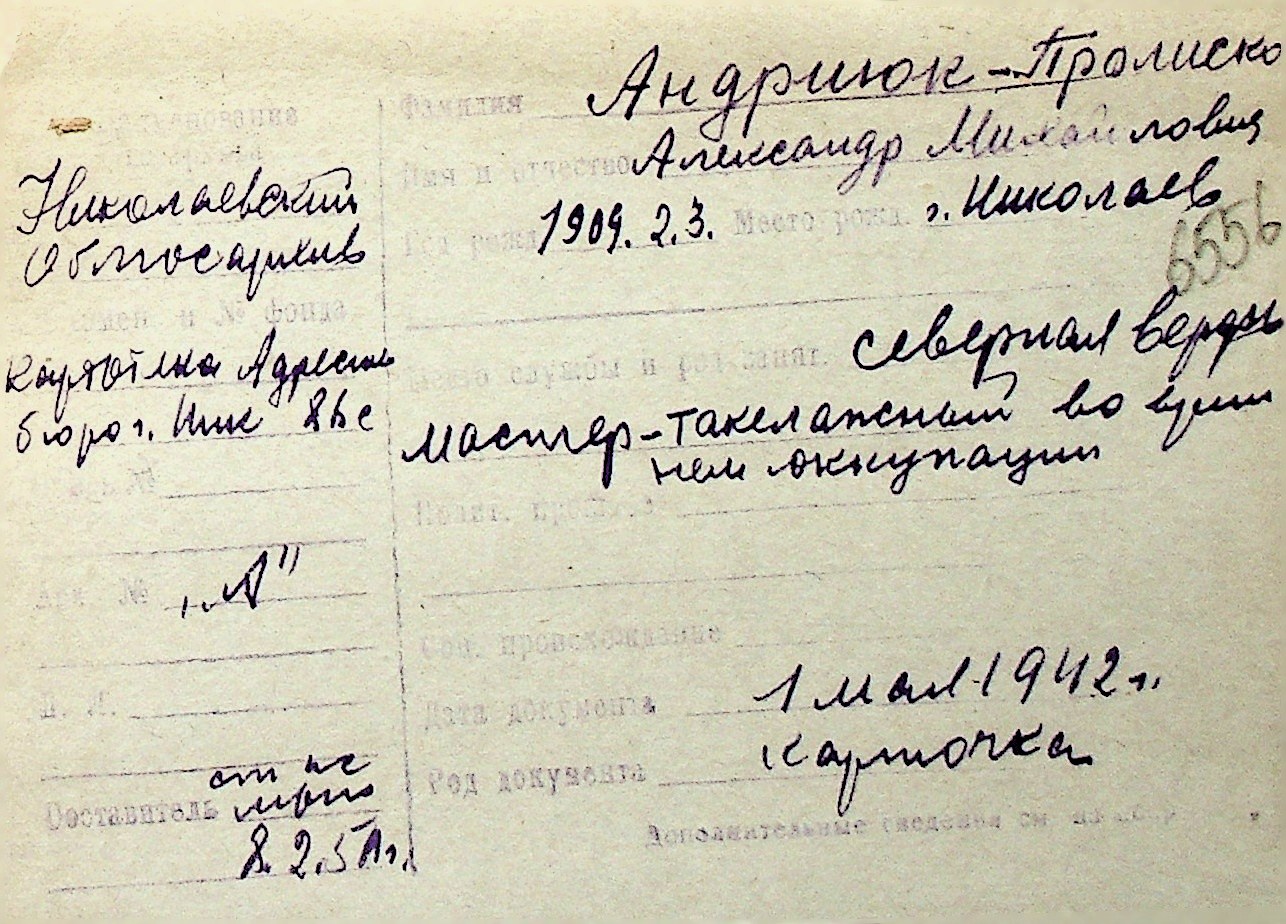 Наименование
Николаевский
Облгосархив
и № фонда
Картотека Адресно
бюро г. Ник
Арх. № „А"
П. Л.
Составитель
8. 2. 51 г.
Фамилия Андриюк-Пролиско
Имя и отчество Александр Михайлович
Год рожд. 1909. 2. 3. Место рожд. г. Николаев
6556
Место службы и род занят. Северная верфь
мастер-такелажный во време
нем оккупации
Соц. происхождение
Дата документа 1 мая 1942 г.
Род документа карточка
Дополнительные сведения см на обор